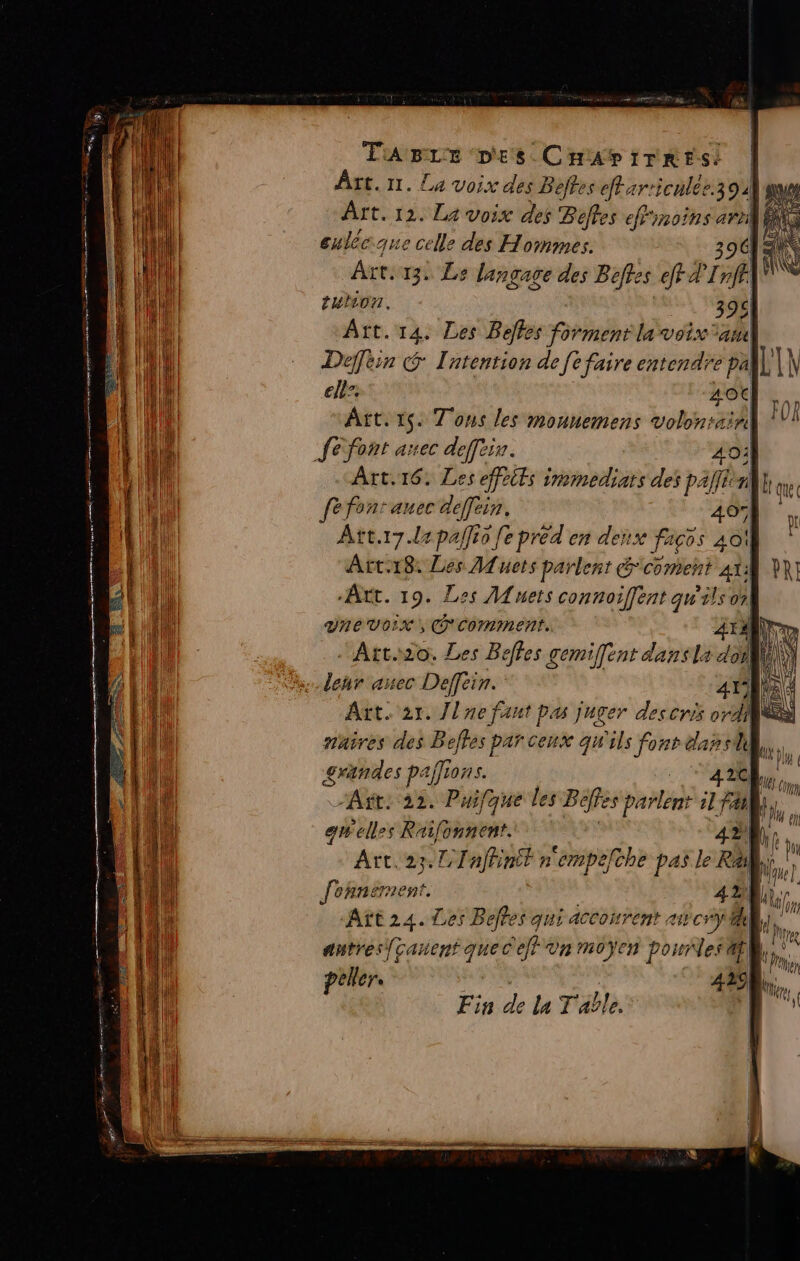 TABLE DES CHAPITRES.
Art. 11. La voix des Beſtes eſt articulée. 394
Art. 12. La voix des Beſtes eſt moins arti
culée que celle des Hommes. 396
Art. 13. Le langage des Beſtes eſt d'Inſti
tution. 398
Art. 14. Les Beſtes forment la voix auec
Deſſein & Intention de ſe faire entendre par
elle. 400
Art. 15. Tous les mouuemens volontaire
ſe font auec deſſein. 403
Art. 16. Les effects immediats des paſſion
ſe font auec deſſein. 407
Art. 17. la paſſiō ſe prēd en deux façōs 40
Art. 18. Les Muets parlent & cōment 41
Art. 19. Les Muets connoiſſent qu'ils on
vne voix, & comment. 41
Art. 20. Les Beſtes gemiſſent dans la dou
leur auec Deſſein. 417
Art. 21. Il ne faut pas juger des cris ordi
naires des Beſtes par ceux qu'ils font dans
grandes paſſions. 420
Art. 22. Puiſque les Beſtes parlent il fau
qu'elles Raiſonnent. 42
Art. 23. L'Inſtinct n'empeſche pas le Rai
ſonnement. 42
Art 24. Les Beſtes qui accourent au cry d
autres ſçauent que c'eſt vn moyen pour les ap
peller. 429
Fin de la Table.